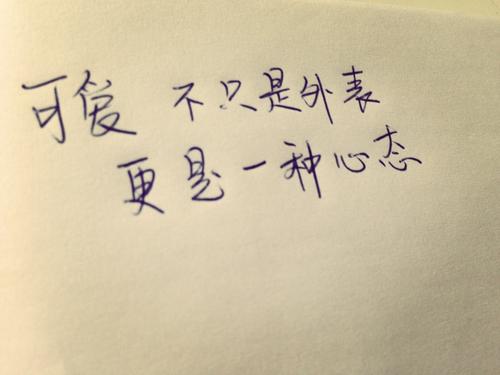 可爱 不只是外表
更是一种心态